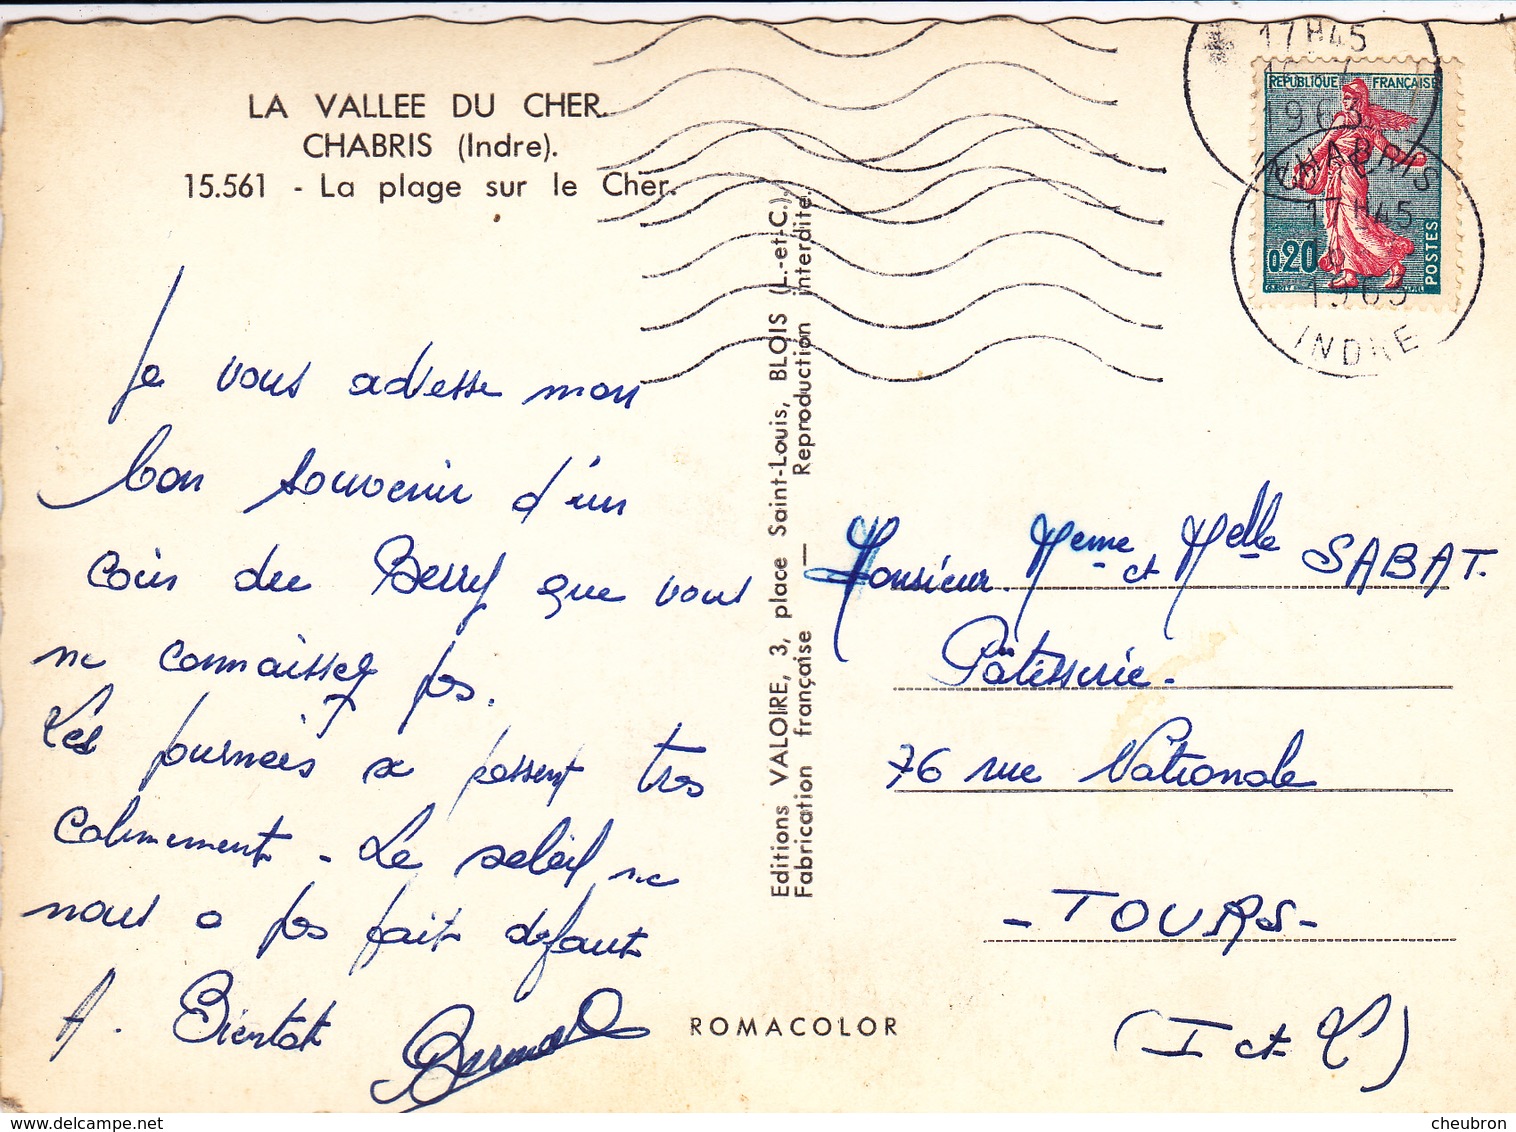 LA VALLEE DU CHER.
CHABRIS (Indre).
15.561 - La plage sur le Cher.
Je vous adresse mon
bon souvenir d'un
coin du Berry que vous
ne connaissez pas.
Les journées se passent très
calmement - Le soleil ne
nous a pas fait défaut
A. Bientôt
Bernard
Editions VALOIRE, 3, place Saint-Louis, BLOIS (L.-et-C.).
Fabrication française — Reproduction interdite.
ROMACOLOR
17H45
1963
INDRE
REPUBLIQUE FRANÇAISE
0,20
POSTES
CHABRIS
17H45
1963
INDRE
Monsieur. Meme et Melle SABAT.
Pâtisserie.
76 rue Nationale
- TOURS -
(I et L)
cheubron
www.delcampe.net